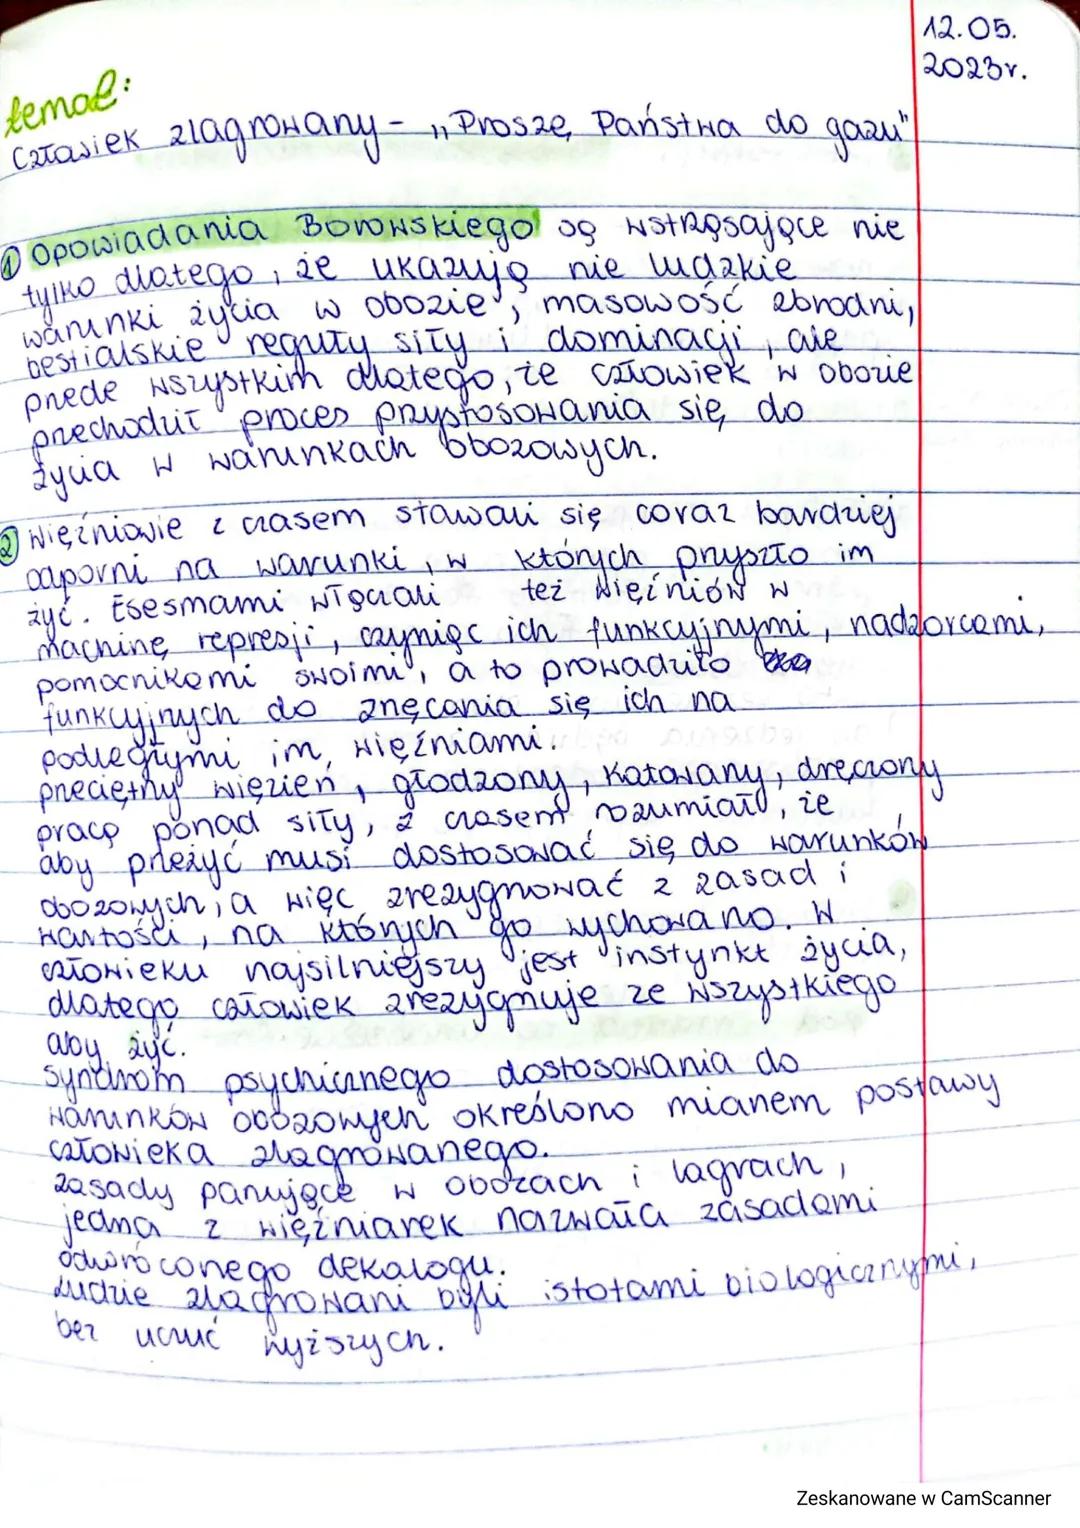 12.05.
2023r.
temat:
Człowiek zlagrowany - „Proszę Państwa do gazu"
① Opowiadania Borowskiego są wstrząsające nie
tylko dlatego, że ukazują nie ludzkie
warunki życia w obozie, masowość zbrodni,
bestialskie reguły siły i dominacji, ale
przede wszystkim dlatego, że człowiek w obozie
przechodził proces przystosowania się do
życia w warunkach obozowych.
② Więźniowie z czasem stawali się coraz bardziej
odporni na warunki, w których przyszło im
żyć. Esesmami włączali też więźniów w
machinę represji, czyniąc ich funkcyjnymi, nadzorcami,
pomocnikami swoimi, a to prowadziło
funkcyjnych do znęcania się ich na
podległymi im, więźniami.
przeciętny więzień, głodzony, katowany, dręczony
pracą ponad siły, z czasem rozumiał, że
aby przeżyć musi dostosować się do warunków
obozowych, a więc zrezygnować z zasad i
wartości, na których go wychowano. W
człowieku najsilniejszy jest instynkt życia,
dlatego człowiek zrezygnuje ze wszystkiego
aby żyć.
syndrom psychicznego dostosowania do
warunków obozowych określono mianem postawy
człowieka zlagrowanego.
zasady panujące w obozach i lagrach,
jedna z więźniarek nazwała zasadami
odwróconego dekalogu.
Ludzie zlagrowani byli istotami biologicznymi,
bez uczuć wyższych.
Zeskanowane w CamScanner